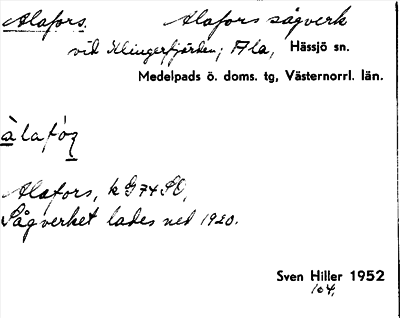 Alafors. Alafors sågverk
vid Klingerfjärden, Ala, Hässjö sn.
Medelpads ö. doms. tg, Västernorrl. län.
àlafóʂ
Alafors, k G74SO,
Sågverket lades ned 1920.
Sven Hiller 1952
104,